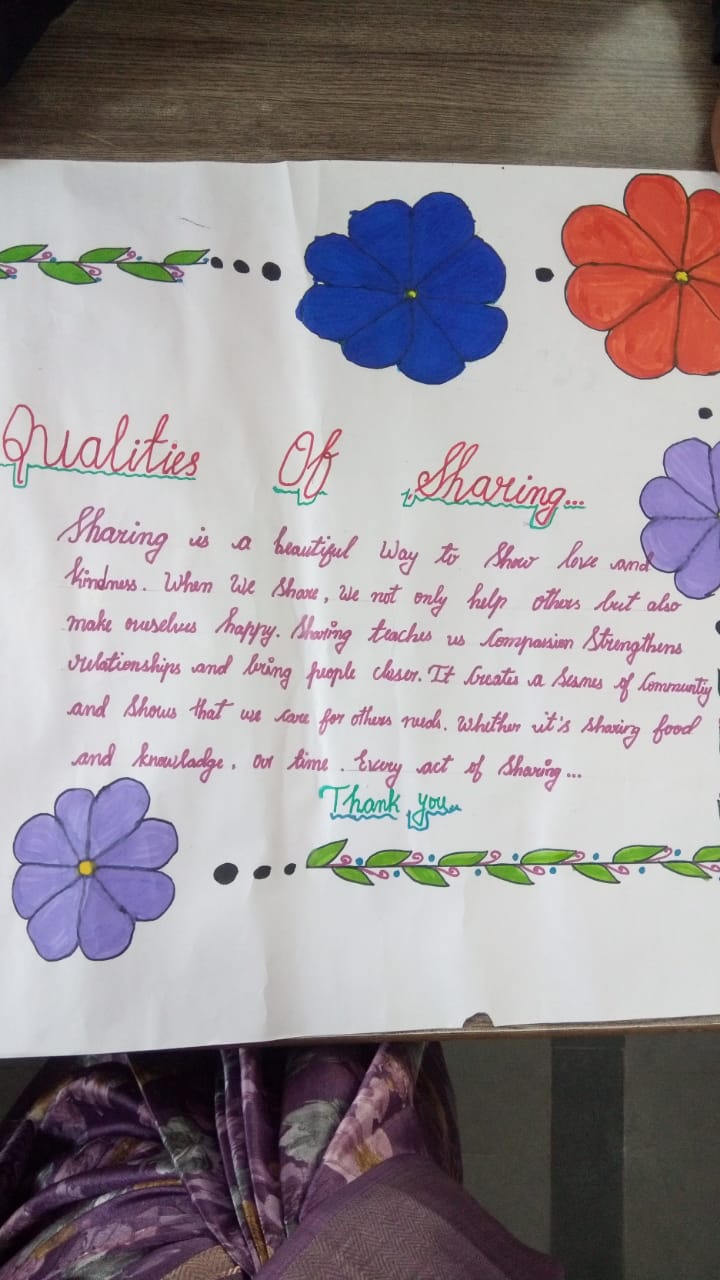 Qualities Of Sharing...
Sharing is a beautiful Way to Show love and
kindness. When We Share, We not only help others but also
make ourselves happy. Sharing teaches us Compassion Strengthens
relationships and bring people closer. It Creates a Sesnes of Communtiy
and Shows that we care for others needs. Whether it's sharing food
and knowladge, our time. Every act of Sharing...
Thank you